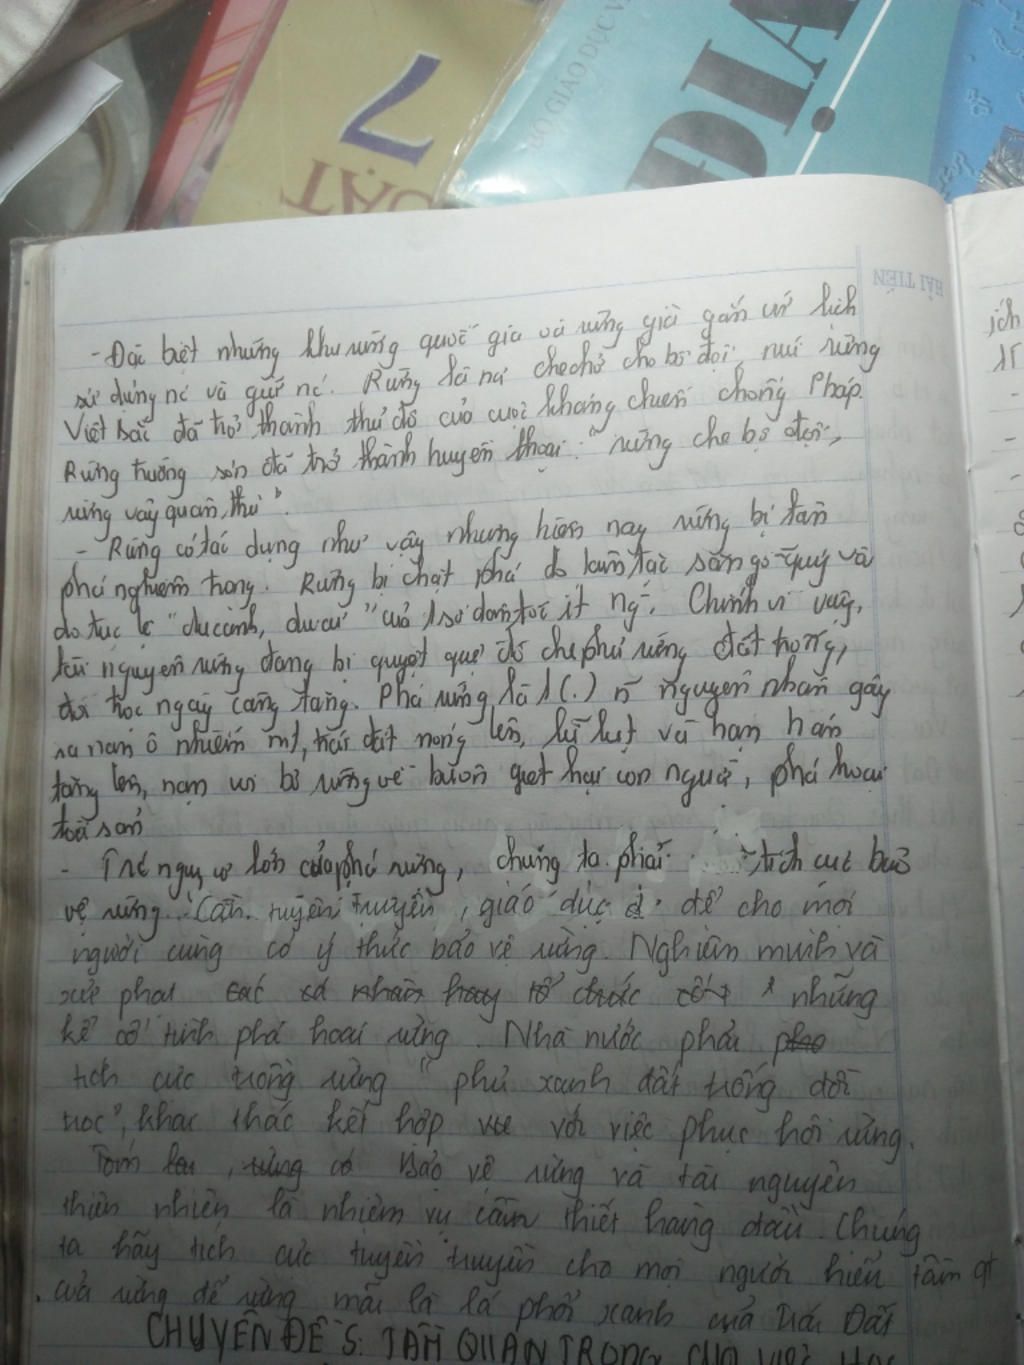 7
OẠT
BỘ GIÁO DỤC V
ĐỊA
HẢI TIẾN
- Đặc biệt những khu rừng quốc gia và rừng già gắn với lịch
sử dựng nc và giữ nc. Rừng là nơi che chở cho bộ đội, núi rừng
Việt Bắc đã trở thành thủ đô của cuộc kháng chiến chống Pháp.
Rừng trường sơn đã trở thành huyền thoại: "rừng che bộ đội,
rừng vây quân thù".
- Rừng có tác dụng như vậy nhưng hiện nay rừng bị tàn
phá nghiêm trọng. Rừng bị chặt phá do lâm tặc săn gỗ quý và
do tục lệ "du canh, du cư" của 1 số dân tộc ít ng. Chính vì vậy,
tài nguyên rừng đang bị quyệt quệ độ che phủ rừng đất trống,
đồi trọc ngày càng tăng. Phá rừng là 1 (.) n~ nguyên nhân gây
ra nạn ô nhiễm mt, trái đất nóng lên, lũ lụt và hạn hán
tăng lên, nạn voi bỏ rừng về buôn giết hại con người, phá hoại
tài sản
- Trc nguy cơ lớn của phá rừng, chúng ta phải tích cực bảo
vệ rừng. Cần tuyên truyền, giáo dục để cho mọi
người cùng có ý thức bảo vệ rừng. Nghiêm minh và
xử phạt các cá nhân hay tổ chức những
kẻ cố tình phá hoại rừng. Nhà nước phải pho
tích cực trồng rừng "phủ xanh đất trống đồi
trọc", khai thác kết hợp với việc phục hồi rừng.
Tóm lại, rừng có Bảo vệ rừng và tài nguyên
thiên nhiên là nhiệm vụ cần thiết hàng đầu. Chúng
ta hãy tích cực tuyên truyền cho mọi người hiểu tầm qt
của rừng để rừng mãi là lá phổi xanh của Trái Đất
CHUYÊN ĐỀ 5: TẦM QUAN TRỌNG CỦA VIỆC HỌC